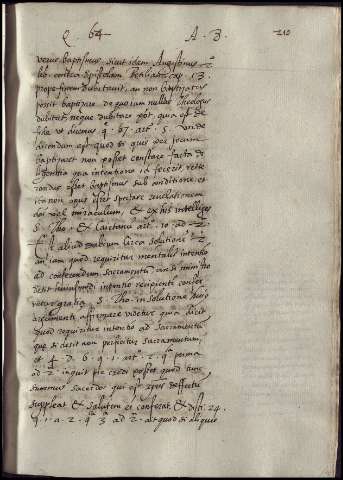 Q. 64 A. 3. 210
verus baptismus, sicut idem Augustinus
lib. contra epistolam cap. 13.
prope finem dubitavit, an non baptizatus
possit baptizare de quo iam nullus Theologus
dubitat, neque dubitare pot. quia est de
fide ut dicemus q. 67. art. 5. Unde
dicendum est quod si quis per iocum
baptizaret non posset constare facta di
ligentia qua intentione id fecerit, rete
randus esset baptismus sub conditione, et
ita non opus esset spectare revelationem
vel miraculum, & ex his intelliges
S. Tho. & Caietanu art. 10. ad 2.
aliud dubium circa solutione
an iam quod requiritur mentalis intentio
ad conferendum sacramentu, an si ministro
desit intentio recipienti confer
retur gratia. S. Tho. in solutione huius
argumenti affirmare videtur quia dicit
quod requiritur intentio ad sacramentu
quae si desit non perficitur sacramentum,
et 4. d. 6. q. 1. art. 2. prima
ad 2. inquit pie credi potest quod tunc
summus sacerdos qui est defectu
suppleat & salutem ei conferat & dist. 24.
q. 1. a. 2. ad 2. ait quod si aliquis